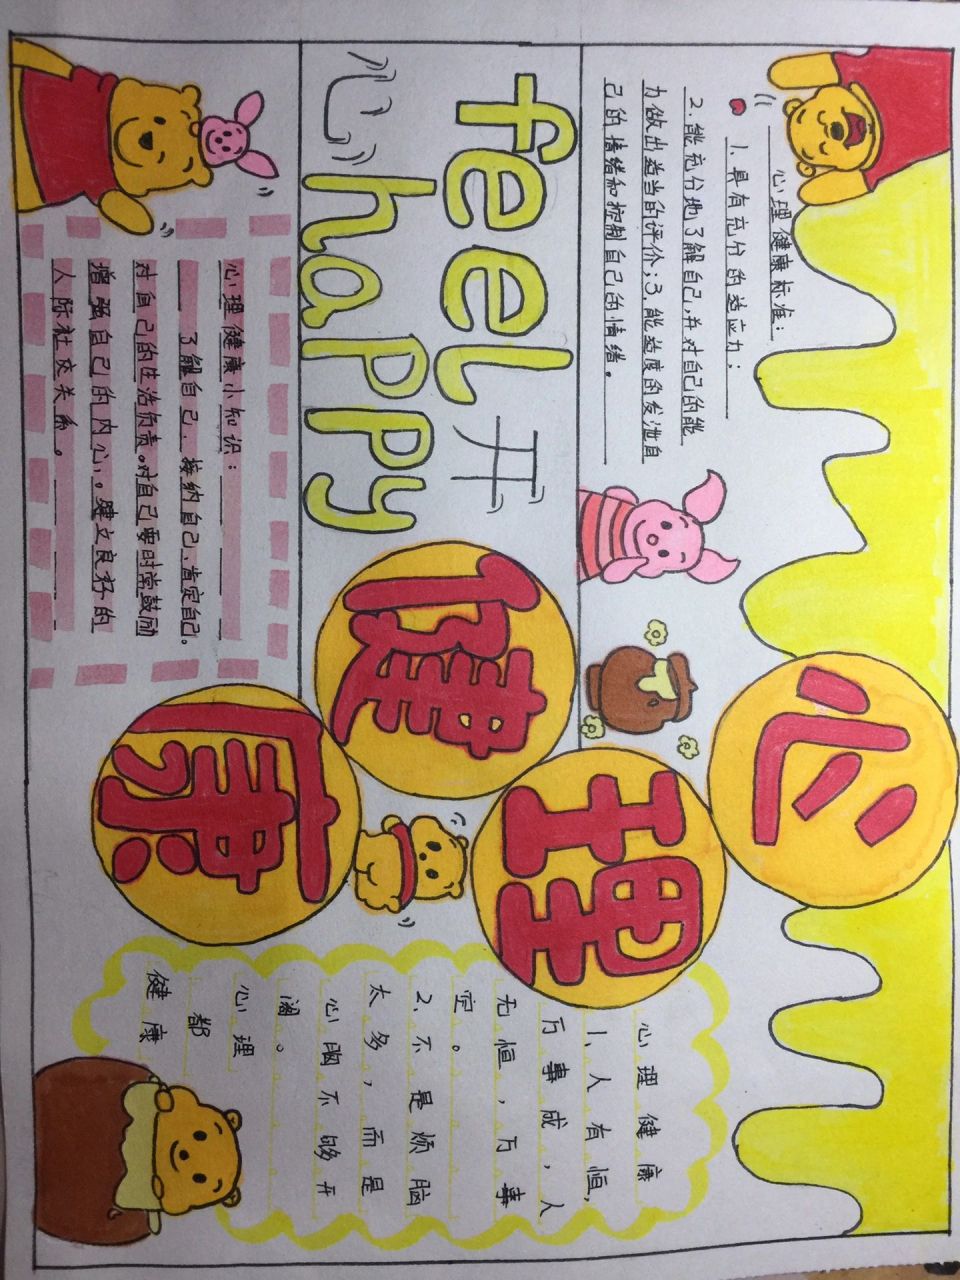 心理健康标准：
1.具有充分的适应力；
2.能充分地了解自己,并对自己的能
力做出适当的评价；3.能适度的发泄自
己的情绪和控制自己的情绪。
feel 开
心 happy
心理健康小知识：
了解自己、接纳自己、肯定自己。
对自己的生活负责。对自己要时常鼓励
增强自己的内心。建立良好的
人际社交关系。
心
理
健
康
心理健康
1、人有恒，
万事成，人
无恒，万事
定。
2、不是烦脑
太多，而是
心胸不够开
阔。
心理
都
健康